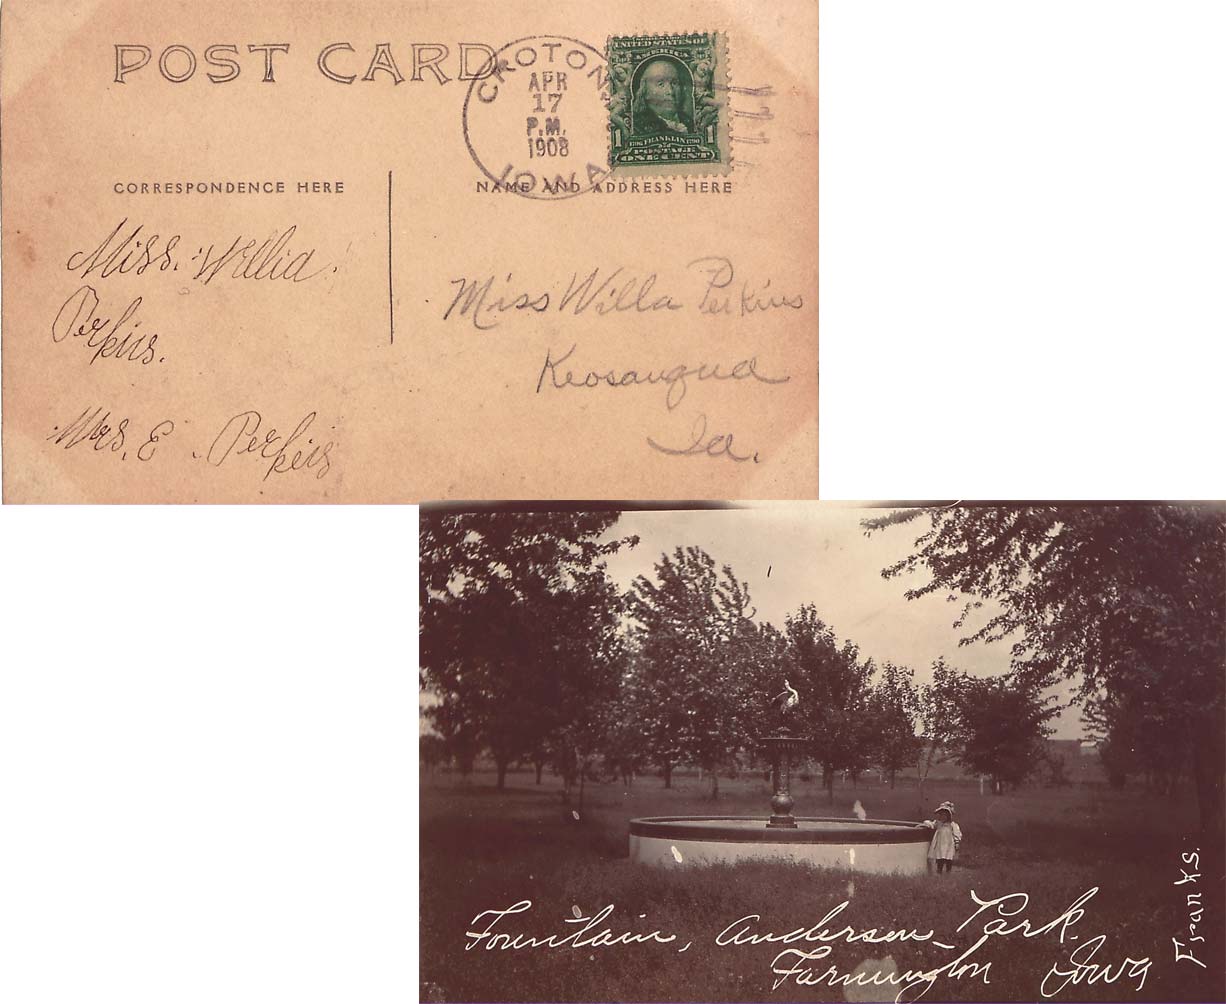 POST CARD
CROTON
APR
17
P.M.
1908
IOWA
UNITED STATES OF
AMERICA
1706 FRANKLIN 1790
POSTAGE
1 1
ONE CENT
CORRESPONDENCE HERE
NAME AND ADDRESS HERE
Miss. Willia
Perkins.
Mrs. E. Perkins
Miss Willa Perkins
Keosauqua
Ia.
Fountain, Anderson Park.
Farmington Iowa
Franks.